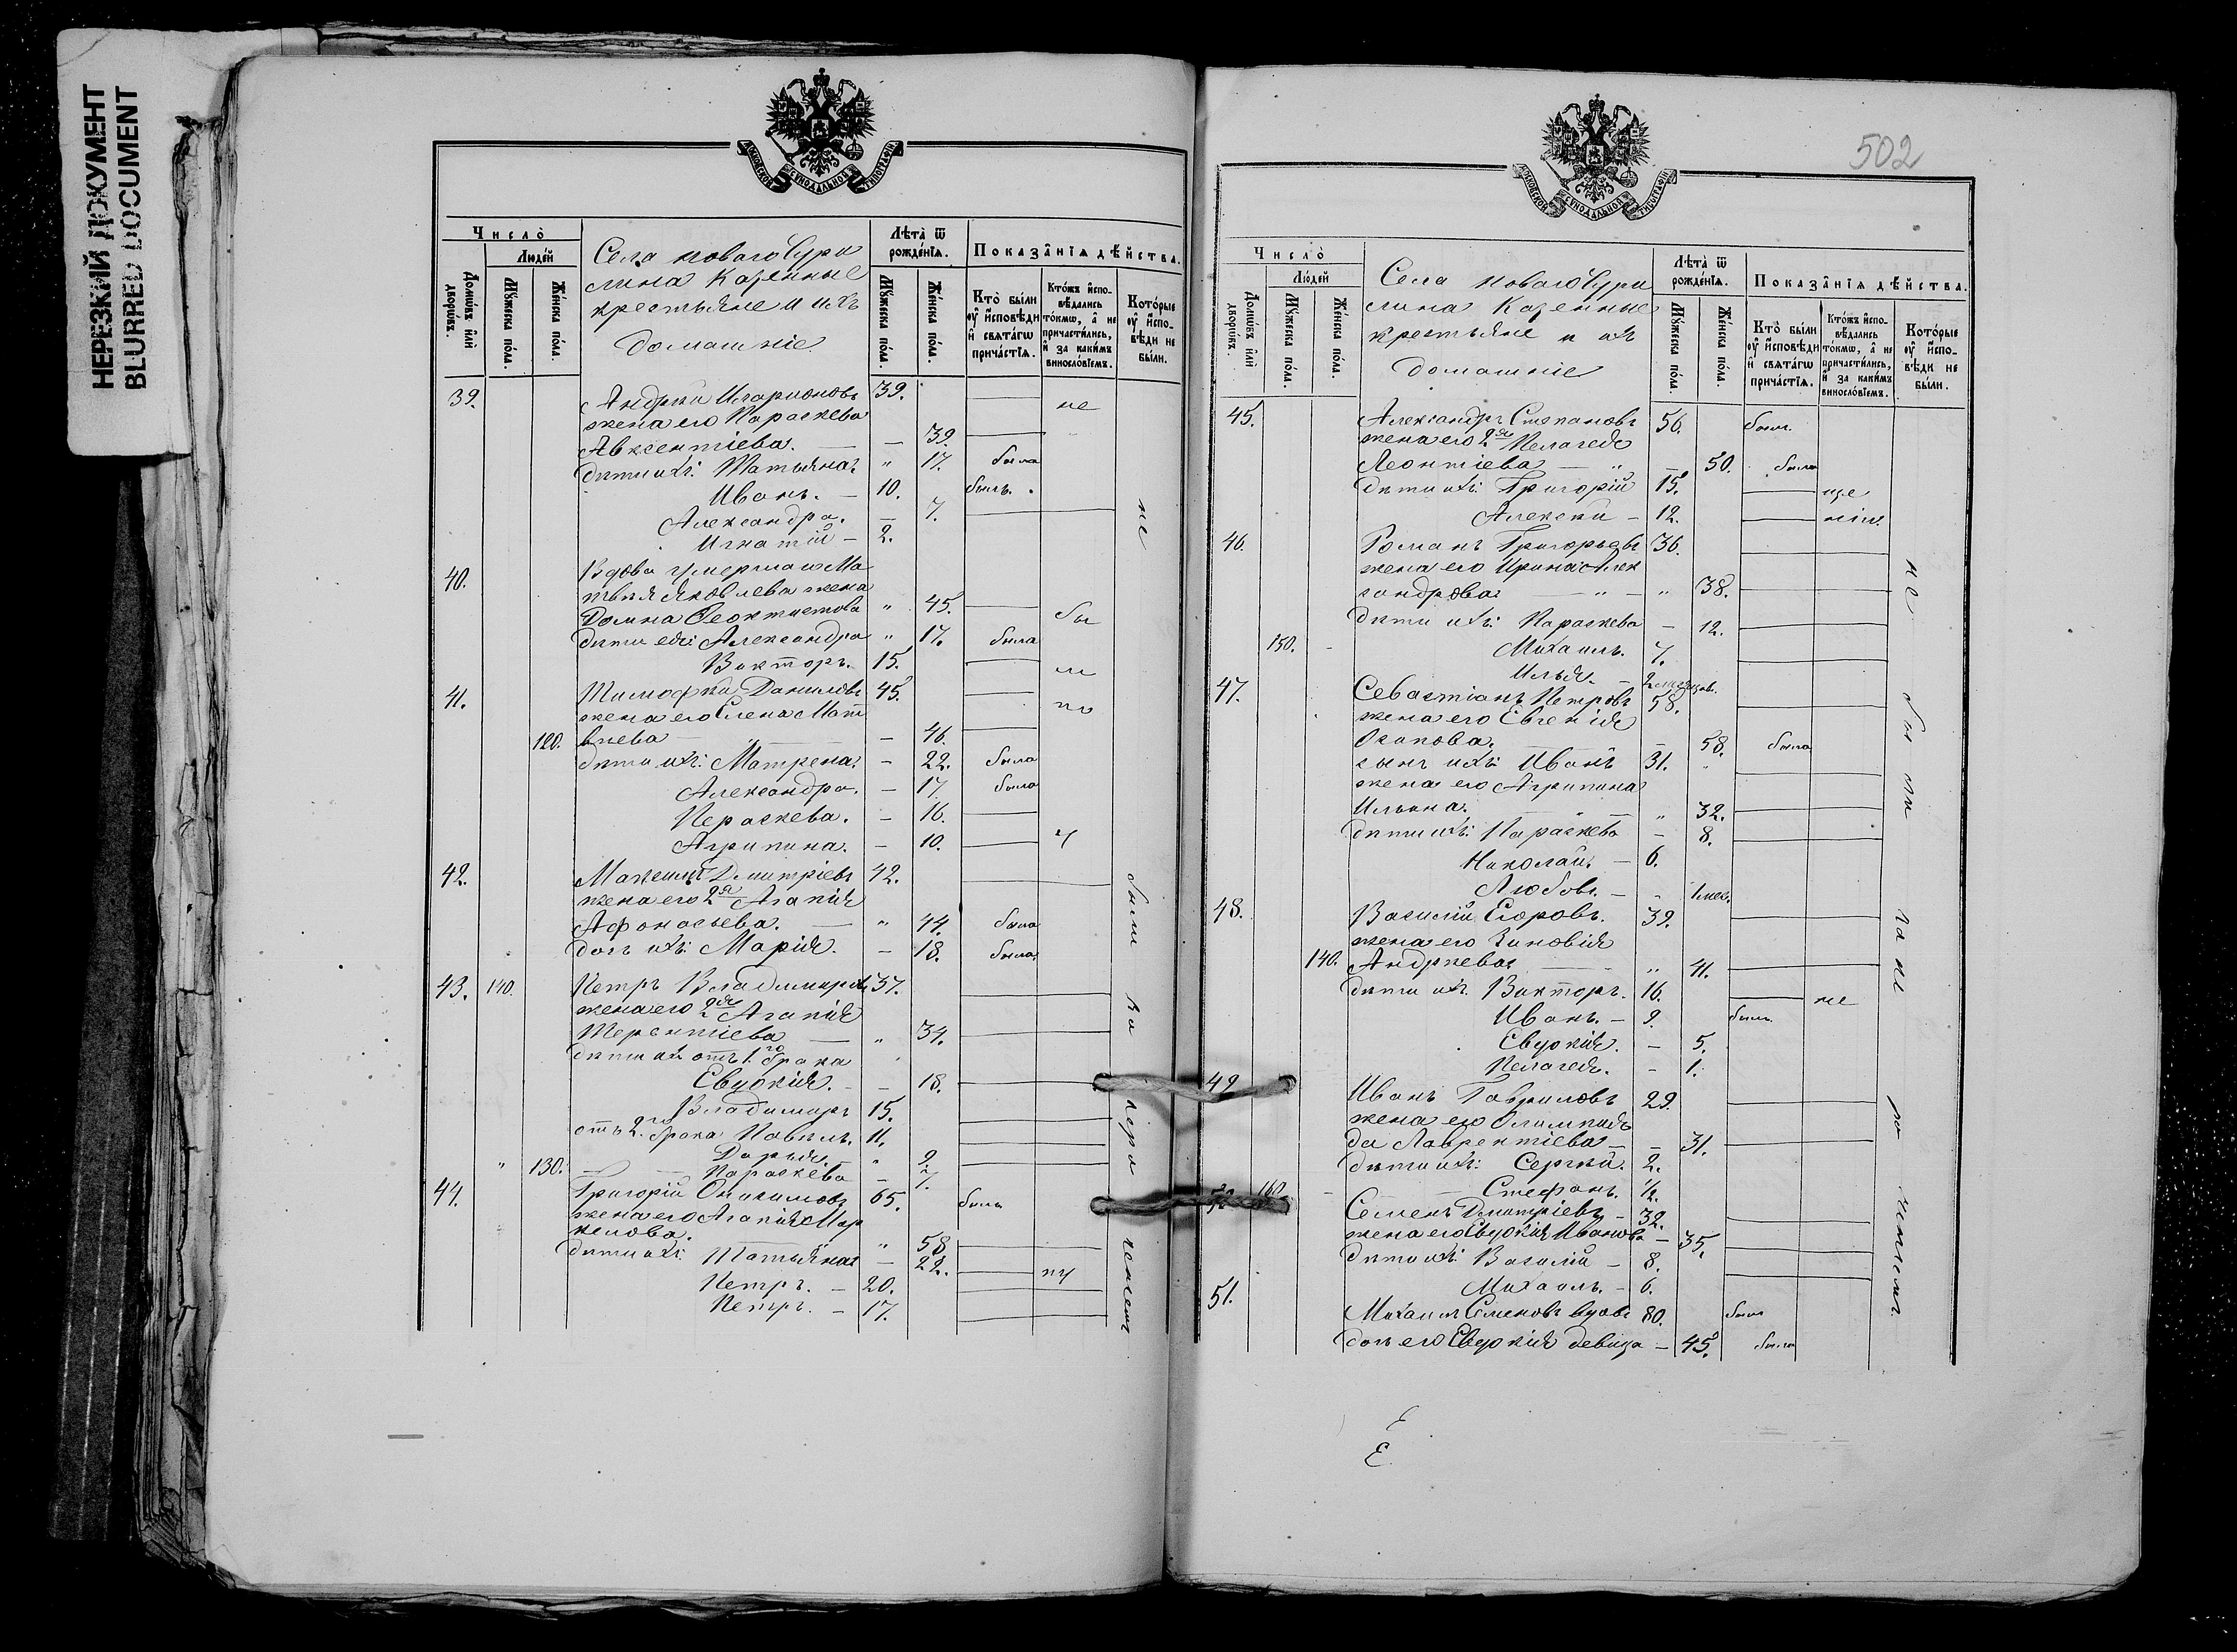 НЕРЕЗКИЙ ДОКУМЕНТ
BLURRED DOCUMENT
МОСКОВСКОЙ СѴНОДАЛЬНОЙ ТИПОГРАФІИ
Число̀
Люде́й
Домѡ́въ и҆лѝ дворѡ́въ.
Мꙋ́жеска по́ла.
Же́нска по́ла.
Села новаго Сури
лина Казенные
крестьяне и ихъ
домашніе.
Лѣта̀ ѿ рожде́нїѧ.
Мꙋ́жеска по́ла.
Же́нска по́ла.
Показа̑нїѧ дѣ́йства.
Кто̀ бы́ли ᲂу҆ и҆сповѣди и҆ свѧта́гѡ прича́стїѧ.
Кто́жъ и҆спо-вѣдались то́кмѡ, а҆ не причасти́лись, и҆ за каки́мъ винослові́емъ.
Кото́рые ᲂу҆ и҆спо-вѣди не бы́ли.
39. Андрей Иларионовъ 39. —
жена его Параскева не
Авксентіева. — — 39. —
дѣти ихъ: Татьяна. " 17. была
Иванъ. — 10. былъ.
Александра. — 7. —
Игнатій — 2.
40. Вдова умершаго Ма
твѣя Яковлева жена
Домна Феоктистова " 45. — бы
дѣти ея: Александра " 17. была
Викторъ. 15. — ли
41. Тимофей Даниловъ 45. —
жена его Елена Мат по
120. вѣева — — 46. —
дѣти ихъ: Матрена. — 22. была
Александра. — 17. была
Параскева. — 16. —
Агрипина. — 10. — у
42. Максимъ Димитріевъ 42. —
жена его 2я Агапія
Афонасьева. — " 44. была
дочь ихъ: Марія. — 18. была
43. 140. Петръ Владимировъ 37. —
жена его 2я Агапія
Терентіева — " 34. —
дѣти ихъ отъ 1.го брака
Евдокія. — — 18. —
Владимиръ 15. —
отъ 2.го брака Павелъ. 11. —
Дарья. " 9. —
" 130. — Параскева — 7.
44. Григорій Онисимовъ 65. былъ
жена его Агапія Мар
келова. " 58. —
дѣти ихъ: Татьяна — 22. — пу
Петръ. — 20. —
Петръ. — 17. —
не
были
502
МОСКОВСКОЙ СѴНОДАЛЬНОЙ ТИПОГРАФІИ
Число̀
Люде́й
Домѡ́въ и҆лѝ дворѡ́въ.
Мꙋ́жеска по́ла.
Же́нска по́ла.
Села новаго Сури
лина Казенные
крестьяне и ихъ
домашніе
Лѣта̀ ѿ рожде́нїѧ.
Мꙋ́жеска по́ла.
Же́нска по́ла.
Показа̑нїѧ дѣ́йства.
Кто̀ бы́ли ᲂу҆ и҆сповѣди и҆ свѧта́гѡ прича́стїѧ.
Кто́жъ и҆спо-вѣдались то́кмѡ, а҆ не причасти́лись, и҆ за каки́мъ винослові́емъ.
Кото́рые ᲂу҆ и҆спо-вѣди не бы́ли.
45. Александръ Степановъ 56. былъ
жена его 2я Пелагея
Леонтіева — " — 50. была
дѣти ихъ: Григорій 15. — ще
Алексѣй — 12. — нію.
46. Романъ Григорьевъ 36. —
жена его Ирина Алек
сандрова — " — " 38. —
дѣти ихъ: Параскева — 12. —
150. Михаилъ. 7. —
Илья. — 2 мѣсяцов.
47. Севастіанъ Петровъ 58. —
жена его Евгенія
Осипова. — — 58. была
сынъ ихъ Иванъ 31. —
жена его Агрипина
Ильина. — " 32. —
дѣти ихъ: Параскева — 8. —
Николай. — 6.
Любовь. — — 1 мес.
48. Василій Егоровъ. 39. —
жена его Зиновія
140. Андреева — " 41. —
дѣти ихъ. Викторъ. 16. — не
Иванъ. — 9. былъ
Евдокія. — 5.
Пелагея. — 1.
49 Иванъ Гавриловъ 29. —
жена его Олимпиа
да Лаврентіева — — 31. —
дѣти ихъ: Сергей. 2.
160. Стефанъ. 1/2.
Семенъ Димитріевъ — 32. —
жена его Евдокія Иванова — 35. —
дѣти ихъ: Василій — 8. —
Михаилъ. — 6.
51. Михаилъ Семеновъ вдовъ 80. былъ
дочь его Евдокія девица — 45. была
не
бы ли